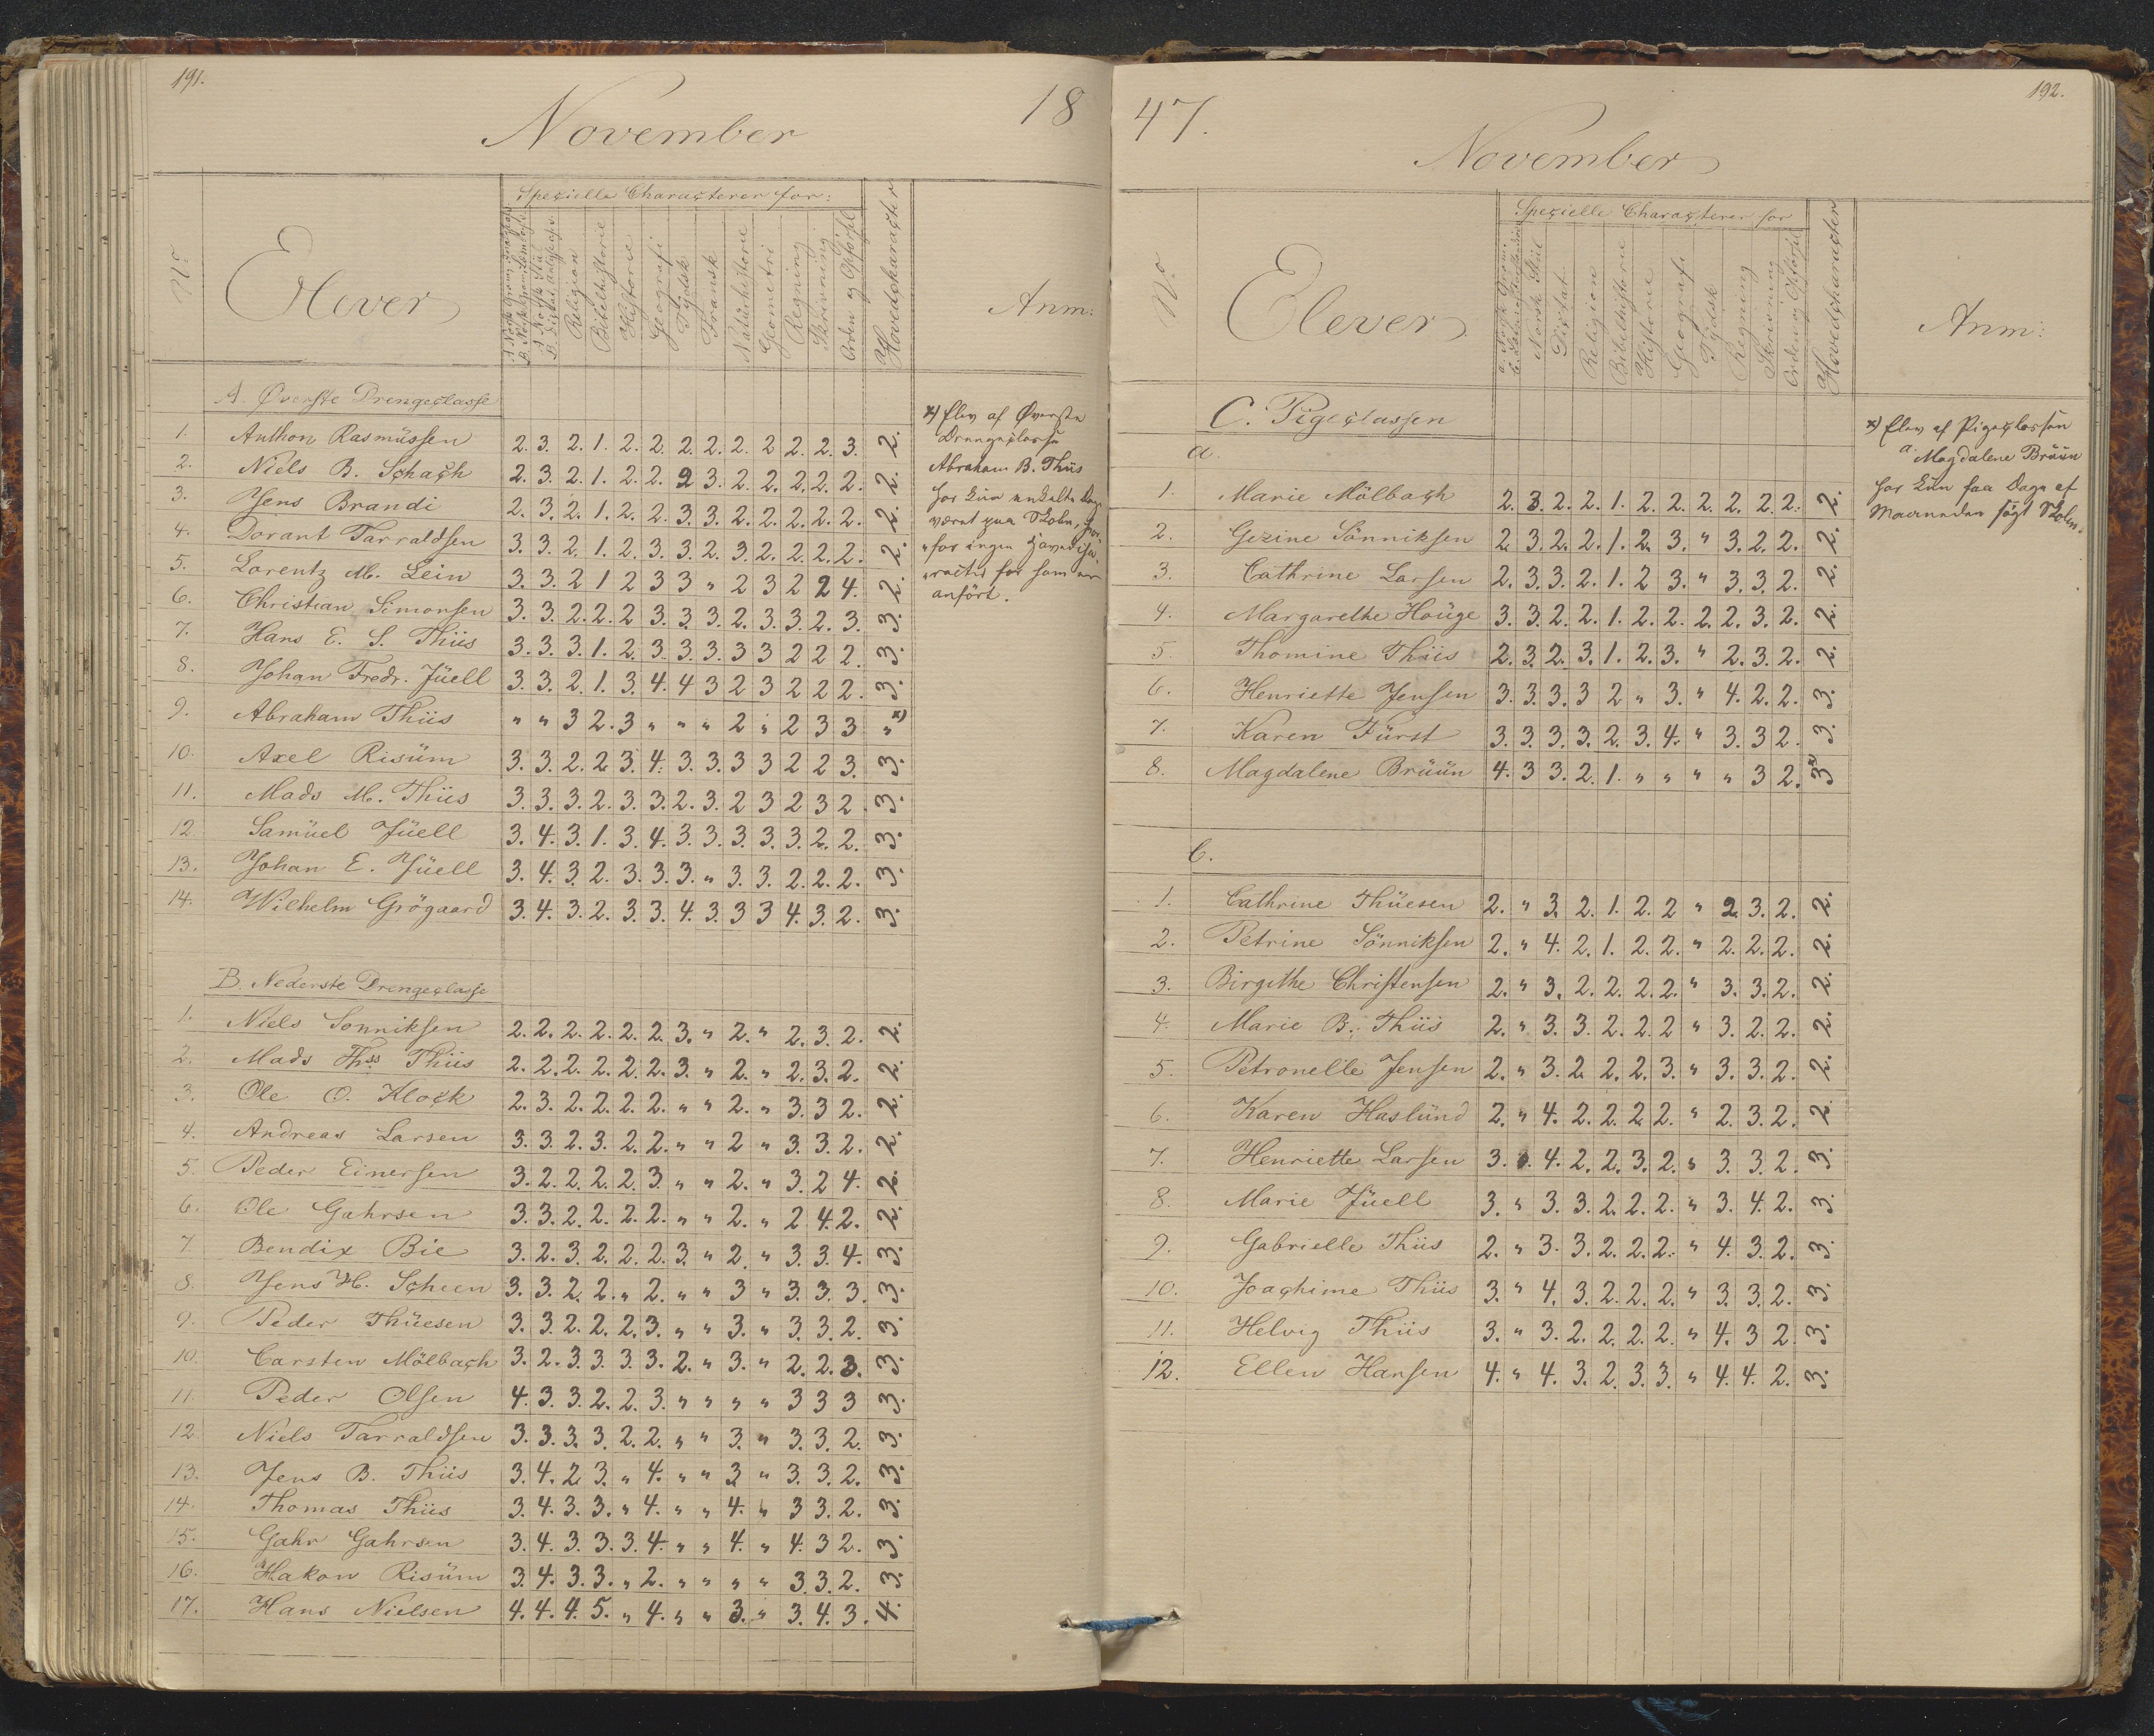 191.
November
18
Spezielle Characterer for:
No
Elever
Religion
Bibelhistorie
Historie
Geografi
Tydsk
Fransk
Natürhistorie
Geometri
Regning
Skrivning
Orden og Opførsel
Hovedcharacter
Anm:
A. Øverste Drengeclasse
1. Anthon Rasmüssen 2. 3. 2. 1. 2. 2. 2. 2. 2. 2 2. 2. 3. 2.
2. Niels B. Schach 2. 3. 2. 1. 2. 2. 2 3. 2. 2. 2. 2. 2. 2.
3. Jens Brandi 2. 3. 2. 1. 2. 2. 3. 3. 2. 2. 2. 2. 2. 2.
4. Dorant Tarraldsen 3. 3. 2. 1. 2. 3. 3. 2. 3. 2. 2. 2. 2. 2.
5. Lorentz M. Lein 3. 3. 2 1 2 3 3 " 2 3 2 2 4. 2.
6. Christian Simonsen 3. 3. 2. 2. 2 3. 3. 3. 2. 3. 3. 2. 3. 3.
7. Hans E. S. Thiis 3. 3. 3. 1. 2. 3. 3. 3. 3 3 2 2 2. 3.
8. Johan Fredr. Jüell 3. 3. 2. 1. 3. 4. 4 3 2 3 2 2 2. 3.
9. Abraham Thiis " " 3 2. 3 " " " 2 " 2 3 3 " x)
10. Axel Risüm 3. 3. 2. 2 3. 4. 3. 3. 3 3 2 2 3. 3.
11. Mads M. Thiis 3. 3. 3. 2. 3. 3. 2. 3. 2 3 2 3 2. 3.
12. Samüel Jüell 3. 4. 3. 1. 3. 4. 3. 3. 3. 3. 3. 2. 2. 3.
13. Johan E. Jüell 3. 4. 3. 2. 3. 3. 3. " 3. 3. 2. 2. 2. 3.
14. Wilhelm Grögaard 3. 4. 3. 2. 3. 3. 4. 3. 3 3 4. 3. 2. 3.
x) Elev af Øverste
Drengeclasse
Abraham B. Thiis
har kün enkelte Dage
været paa Skolen,
for ingen
for som er
anført.
B. Nederste Drengeclasse
1. Niels Sonniksen 2. 2. 2. 2. 2. 2. 3. " 2. " 2. 3. 2. 2.
2. Mads Ths. Thiis 2. 2. 2. 2. 2. 2. 3. " 2. " 2. 3. 2. 2.
3. Ole O. Klock 2. 3. 2. 2. 2. 2. " " 2. " 3. 3 2. 2.
4. Andreas Larsen 3. 3. 2. 3. 2. 2. " " 2 " 3. 3. 2. 2.
5. Peder Einersen 3. 2. 2. 2. 2. 3. " " 2. " 3. 2 4. 2.
6. Ole Gahrsen 3. 3. 2. 2. 2. 2. " " 2. " 2 4. 2. 2.
7. Bendix Bie 3. 2. 3. 2. 2. 2. 3. " 2. " 3. 3. 4. 3.
8. Jens H. Scheen 3. 3. 2. 2. " 2. " " 3 " 3. 3. 3. 3.
9. Peder Thüesen 3. 3. 2. 2. 2. 3. " " 3. " 3. 3. 2. 3.
10. Carsten Mölbach 3. 2. 3. 3. 3. 3. 2. " 3. " 2. 2. 3. 3.
11. Peder Olsen 4. 3. 3. 2. 2. 3. " " " " 3 3 3 3.
12. Niels Tarraldsen 3. 3. 3. 3. 2. 2. " " 3. " 3. 3. 2. 3.
13. Jens B. Thiis 3. 4. 2 3. " 4. " " 3 " 3. 3. 2. 3.
14. Thomas Thiis 3. 4. 3. 3. " 4. " " 4. " 3 3. 2. 3.
15. Gahr Gahrsen 3. 4. 3. 3. 3. 4. " " 4. " 4. 3 2. 3.
16. Hakon Risüm 3. 4. 3. 3. " 2. " " " " 3. 3. 2. 3.
17. Hans Nielsen 4. 4. 4. 5. " 4. " " 3. " 3. 4. 3. 4.
47.
192.
November
Spezielle Characterer for
No.
Elever
Norsk Stiil
Dictat
Religion
Bibelhistorie
Historie
Geografi
Tydsk
Regning
Skrivning
Orden og Opförsel
Hovedcharacter
Anm:
C. Pigeclassen
a.
1. Marie Mölbach 2. 3. 2. 2. 1. 2. 2. 2. 2. 2. 2. 2.
2. Gezine Sönniksen 2. 3. 2. 2. 1. 2. 3. " 3. 2. 2. 2.
3. Cathrine Larsen 2. 3. 3. 2. 1. 2 3. " 3. 3. 2. 2.
4. Margarethe Houge 3. 3. 2. 2. 1. 2. 2. 2. 2. 3. 2. 2.
5. Thomine Thiis 2. 3. 2. 3. 1. 2. 3. " 2. 3. 2. 2.
6. Henriette Jensen 3. 3. 3. 3 2 " 3. " 4. 2. 2. 3.
7. Karen Fürst 3. 3. 3. 3. 2. 3. 4. " 3. 3 2. 3.
8. Magdalene Brüün 4. 3 3. 2. 1. " " " " 3 2. 3 x
x) Elev af Pigeclassen
a. Magdalene Brüün
har kün faa Dage af
Maaneden sögt Skolen.
b.
1. Cathrine Thüesen 2. " 3. 2. 1. 2. 2 " 2. 3. 2. 2.
2. Petrine Sönniksen 2. " 4. 2. 1. 2. 2. " 2. 2. 2. 2.
3. Birgithe Christensen 2. " 3. 2. 2. 2. 2. " 3. 3. 2. 2.
4. Marie B. Thiis 2. " 3. 3. 2. 2. 2 " 3. 2. 2. 2.
5. Petronelle Jensen 2. " 3. 2. 2. 2. 3. " 3. 3. 2. 2.
6. Karen Haslünd 2. " 4. 2. 2. 2. 2. " 2. 3. 2. 2.
7. Henriette Larsen 3. 4. 2. 2. 3. 2. " 3. 3. 2. 3.
8. Marie Jüell 3. " 3. 3. 2. 2. 2. " 3. 4. 2. 3.
9. Gabrielle Thiis 2. " 3. 3. 2. 2. 2. " 4. 3. 2. 3.
10. Joachime Thiis 3. " 4. 3. 2. 2. 2. " 3. 3. 2. 3.
11. Helvig Thiis 3. " 3. 2. 2. 2. 2. " 4. 3 2. 3.
12. Ellen Hansen 4. " 4. 3. 2. 3. 3. " 4. 4. 2. 3.